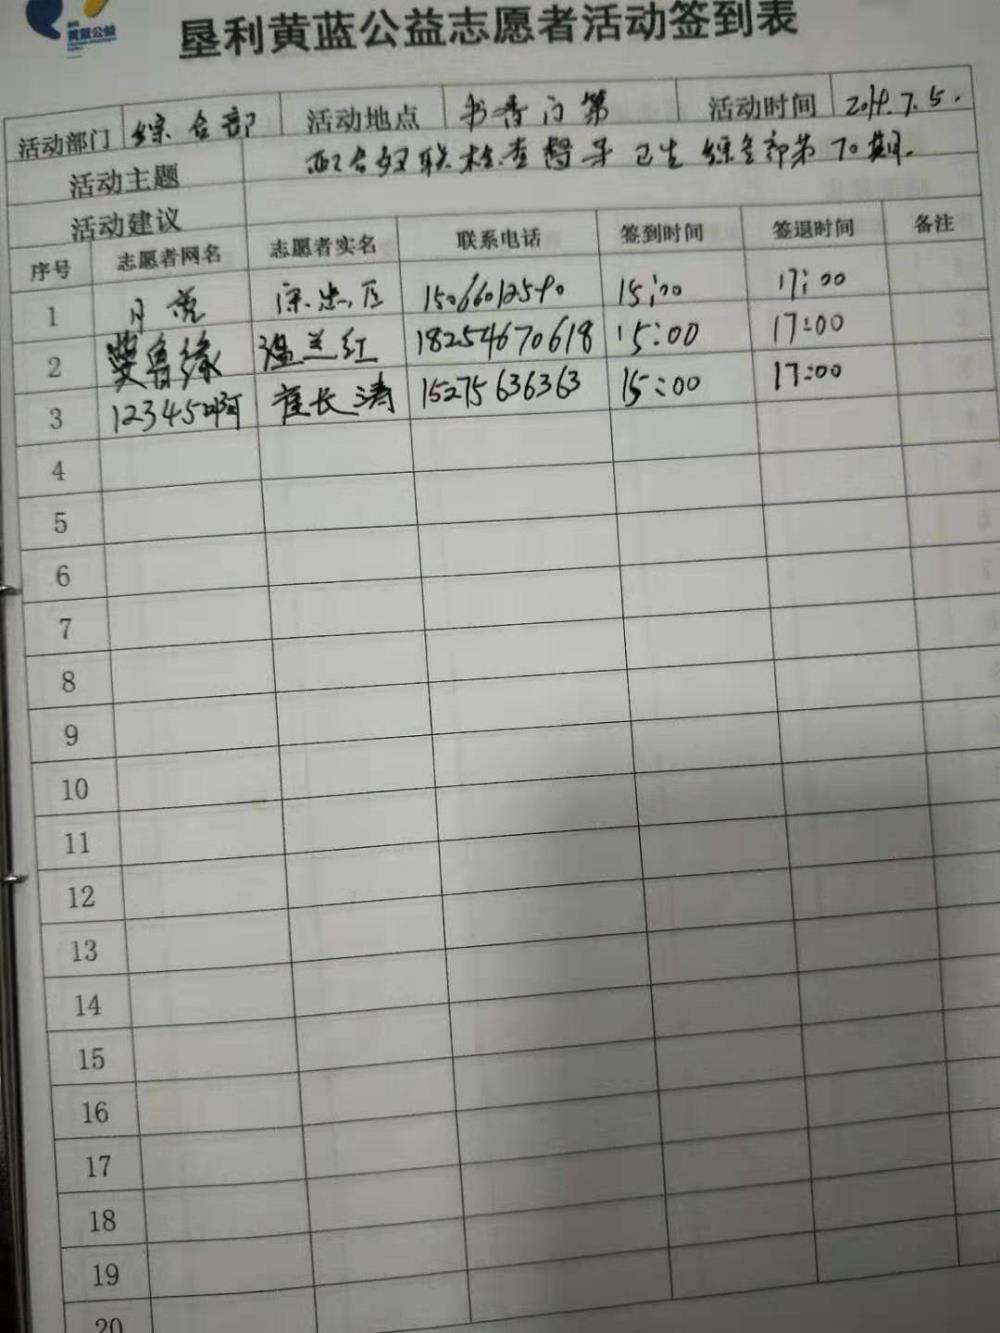 黄蓝公益
垦利黄蓝公益志愿者活动签到表
活动部门 综合部 活动地点 书香门第 活动时间 2019.7.5.
活动主题 配合妇联检查督导卫生 综合部第70期.
活动建议
序号 志愿者网名 志愿者实名 联系电话 签到时间 签退时间 备注
1 月亮 15066012590 15:00 17:00
2 鲁缘 温兰红 18254670618 15:00 17:00
3 12345啊 崔长涛 15275636363 15:00 17:00
4
5
6
7
8
9
10
11
12
13
14
15
16
17
18
19
20